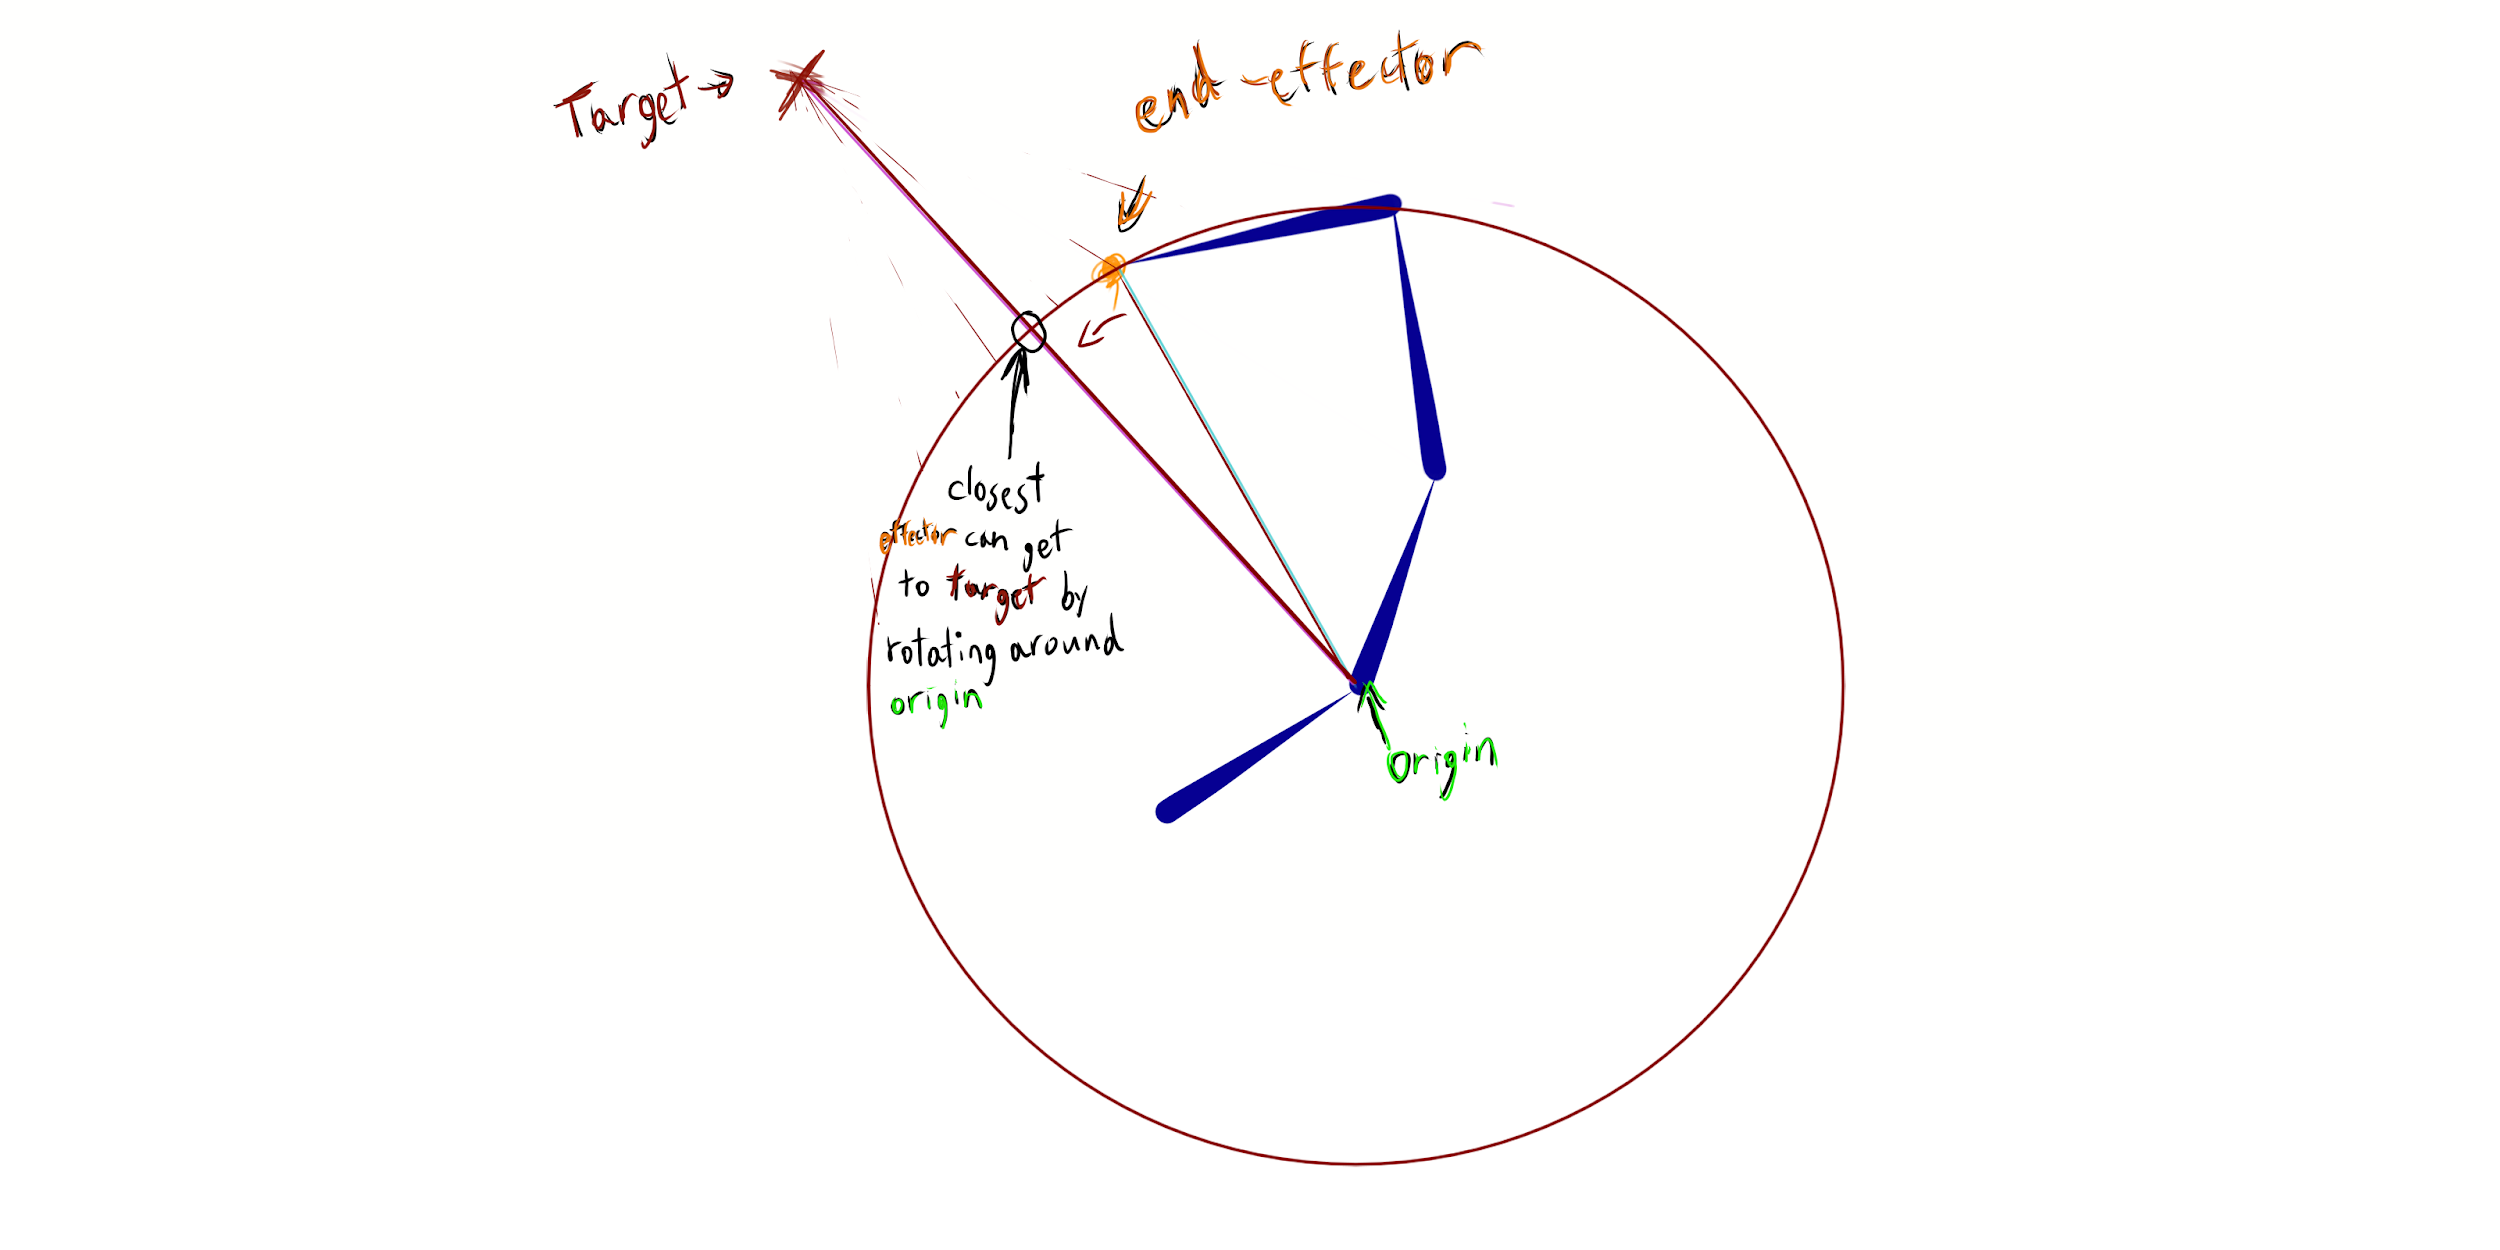 Target →
end-effector
closest
effector can get
to target by
rotating around
origin
origin